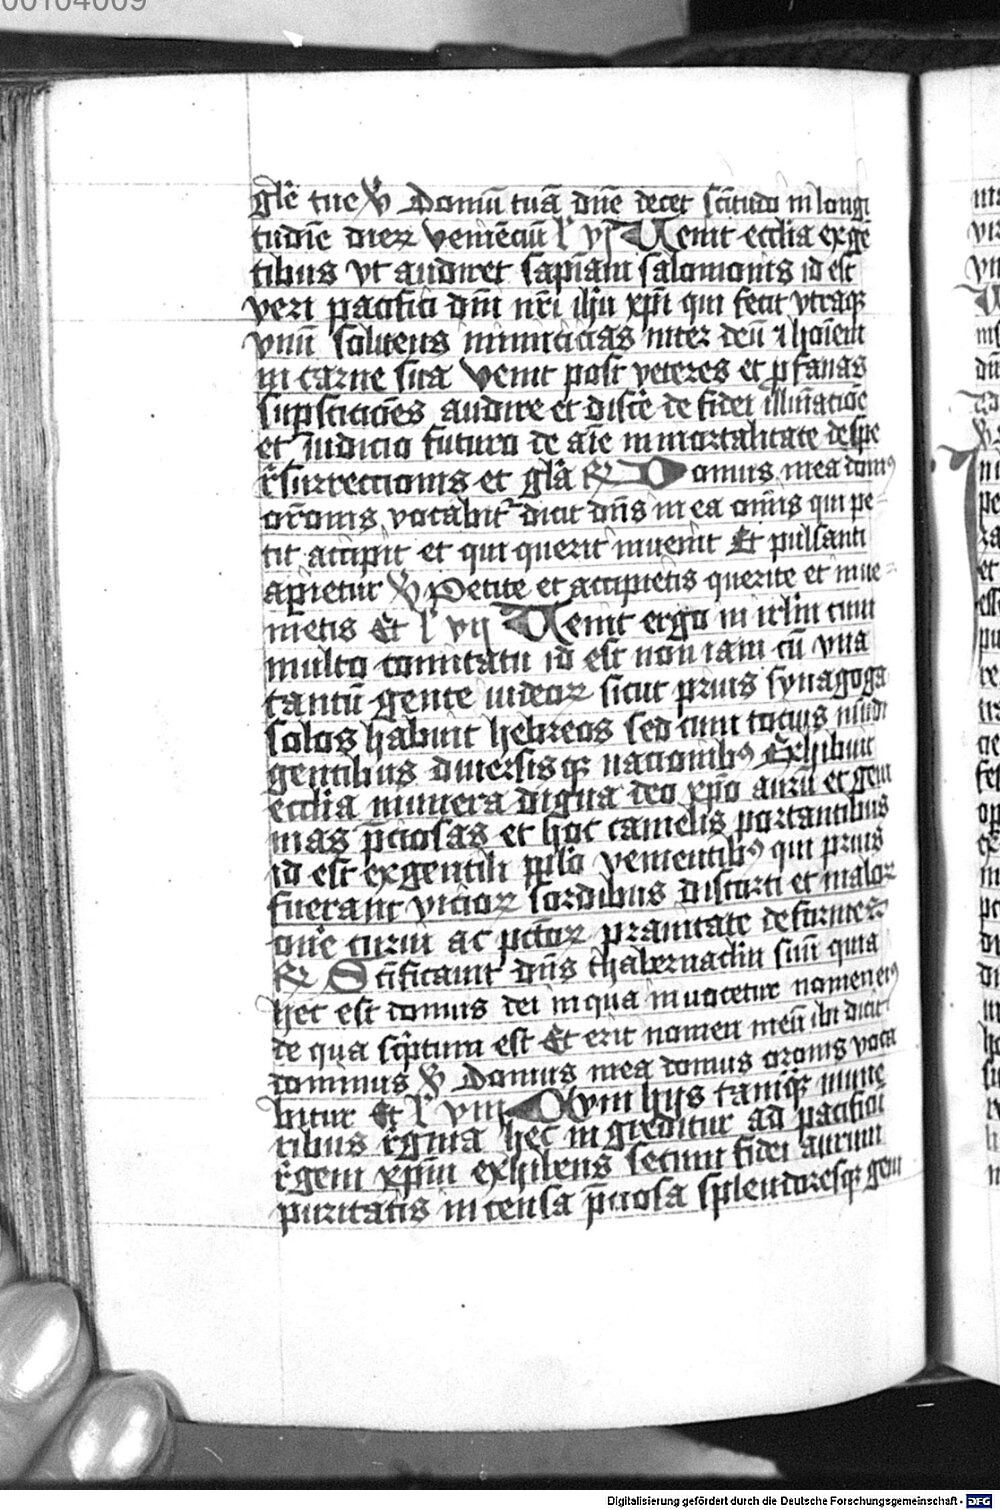 00104009
glē tue ℣ Domū tuā dñe decet scītudo in longi
tudīe dierꝝ veniēciū l' vj Uenit ecclia exge
tibus vt audiret sapīam salomonis id est
veri pacifici dm̄ nr̄i ihū xp̄i qui fecit vtraqꝫ
vnū soluens inimicicias inter deū ⁊ hoīem
in carne sua Venit post veteres et ꝓfanas
suꝑsticiōes audire et discē de fidei illuīacōe
et iudicio futuro de aīe immortalitate de spe
r̄surrectionis et glā ℟ Domus mea domꝰ
orōnis vocabit᷑ dicit dñs in ea omīs qui pe
tit accipit et qui querit inuenit Et pulsanti
apietur ℣ Petite et accipietis querite et inue
nietis Et l' vij Uenit ergo in irlm̄ cum
multo comitatu id est non iam cū vna
tantū gente iudeorꝝ sicut prius synagoga
solos habuit hebreos sed cum tocius mūdi
gentibus diuersisqꝫ nacionibꝰ Exhibuit
ecclia munera digna deo xp̄o aurū et gem
mas p̄ciosas et hoc camelis portantibus
id est exgentili pp̄lo venientibꝰ qui prius
fuerant viciorꝝ sordibus distorti et malorꝝ
onē curui ac pctōrꝝ prauitate deformes
℟ Sc̄ificauit dñs thabernaclm̄ suū quia
hec est domus dei in qua inuocetur nomen eiꝰ
de qua sc̄ptum est Et erit nomen meū ibi dicit
dominus ℣ Domus mea domus orōnis voca
bitur Et l' viij Cum hijs tamqꝫ mune
ribus r̄gina hec ingreditur ad pacificū
r̄gem xp̄m exhibens secum fidei aurum
puritatis incensa p̄ciosa splendoresqꝫ gem
Digitalisierung gefördert durch die Deutsche Forschungsgemeinschaft - DFG